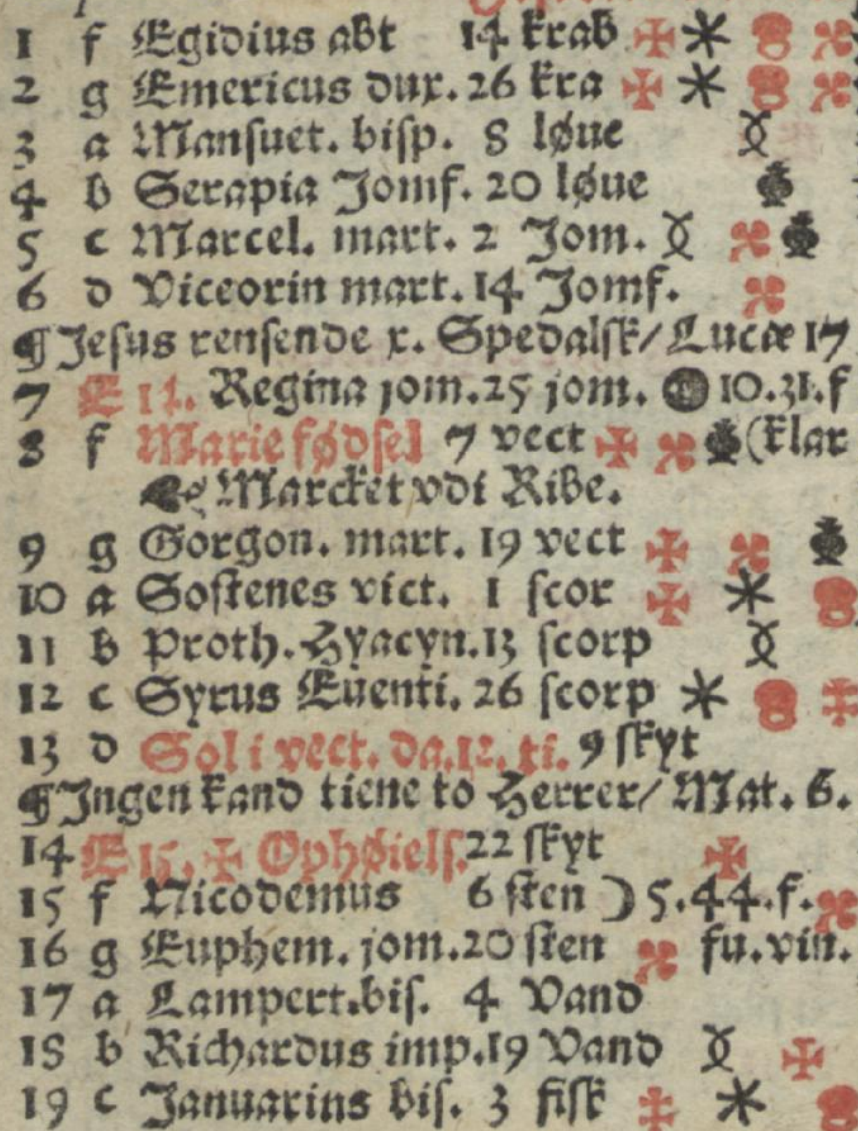 1 f Egidius abt 14 krab
2 g Emericus dux. 26 kra
3 a Mansuet. bisp. 8 løue
4 b Serapia Jomf. 20 løue
5 c Marcel. mart. 2 Jom.
6 d Viceorin mart. 14 Jomf.
¶ Jesus rensende x. Spedalsk/ Lucæ 17
7 E 14. Regina jom. 25 jom. 10.31.f
8 f Marie fødsel 7 vect (klar
Marcket vdi Ribe.
9 g Gorgon. mart. 19 vect
10 a Sostenes vict. 1 scor
11 b Proth. Hyacyn. 13 scorp
12 c Syrus Euenti. 26 scorp
13 d Sol i vect. da. 12. ti. 9 skyt
¶ Ingen kand tiene to Herrer/ Mat. 6.
14 E 15. ✠ Ophøiels. 22 skyt
15 f Nicodemus 6 sten ☽ 5.44.f.
16 g Euphem. jom. 20 sten fu. vin.
17 a Lampert. bis. 4 Vand
18 b Richardus imp. 19 Vand
19 c Januarins bis. 3 fisk